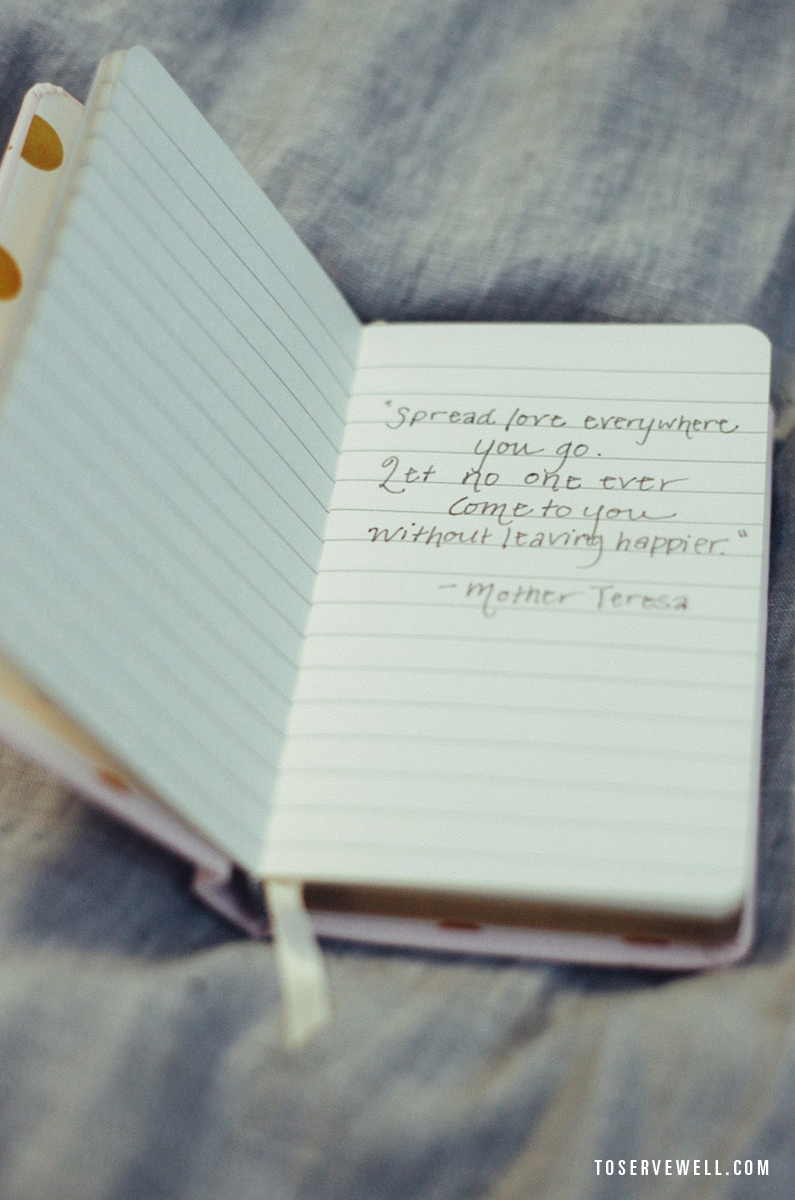 "Spread love everywhere
you go.
Let no one ever
come to you
without leaving happier."
- Mother Teresa
TOSERVEWELL.COM